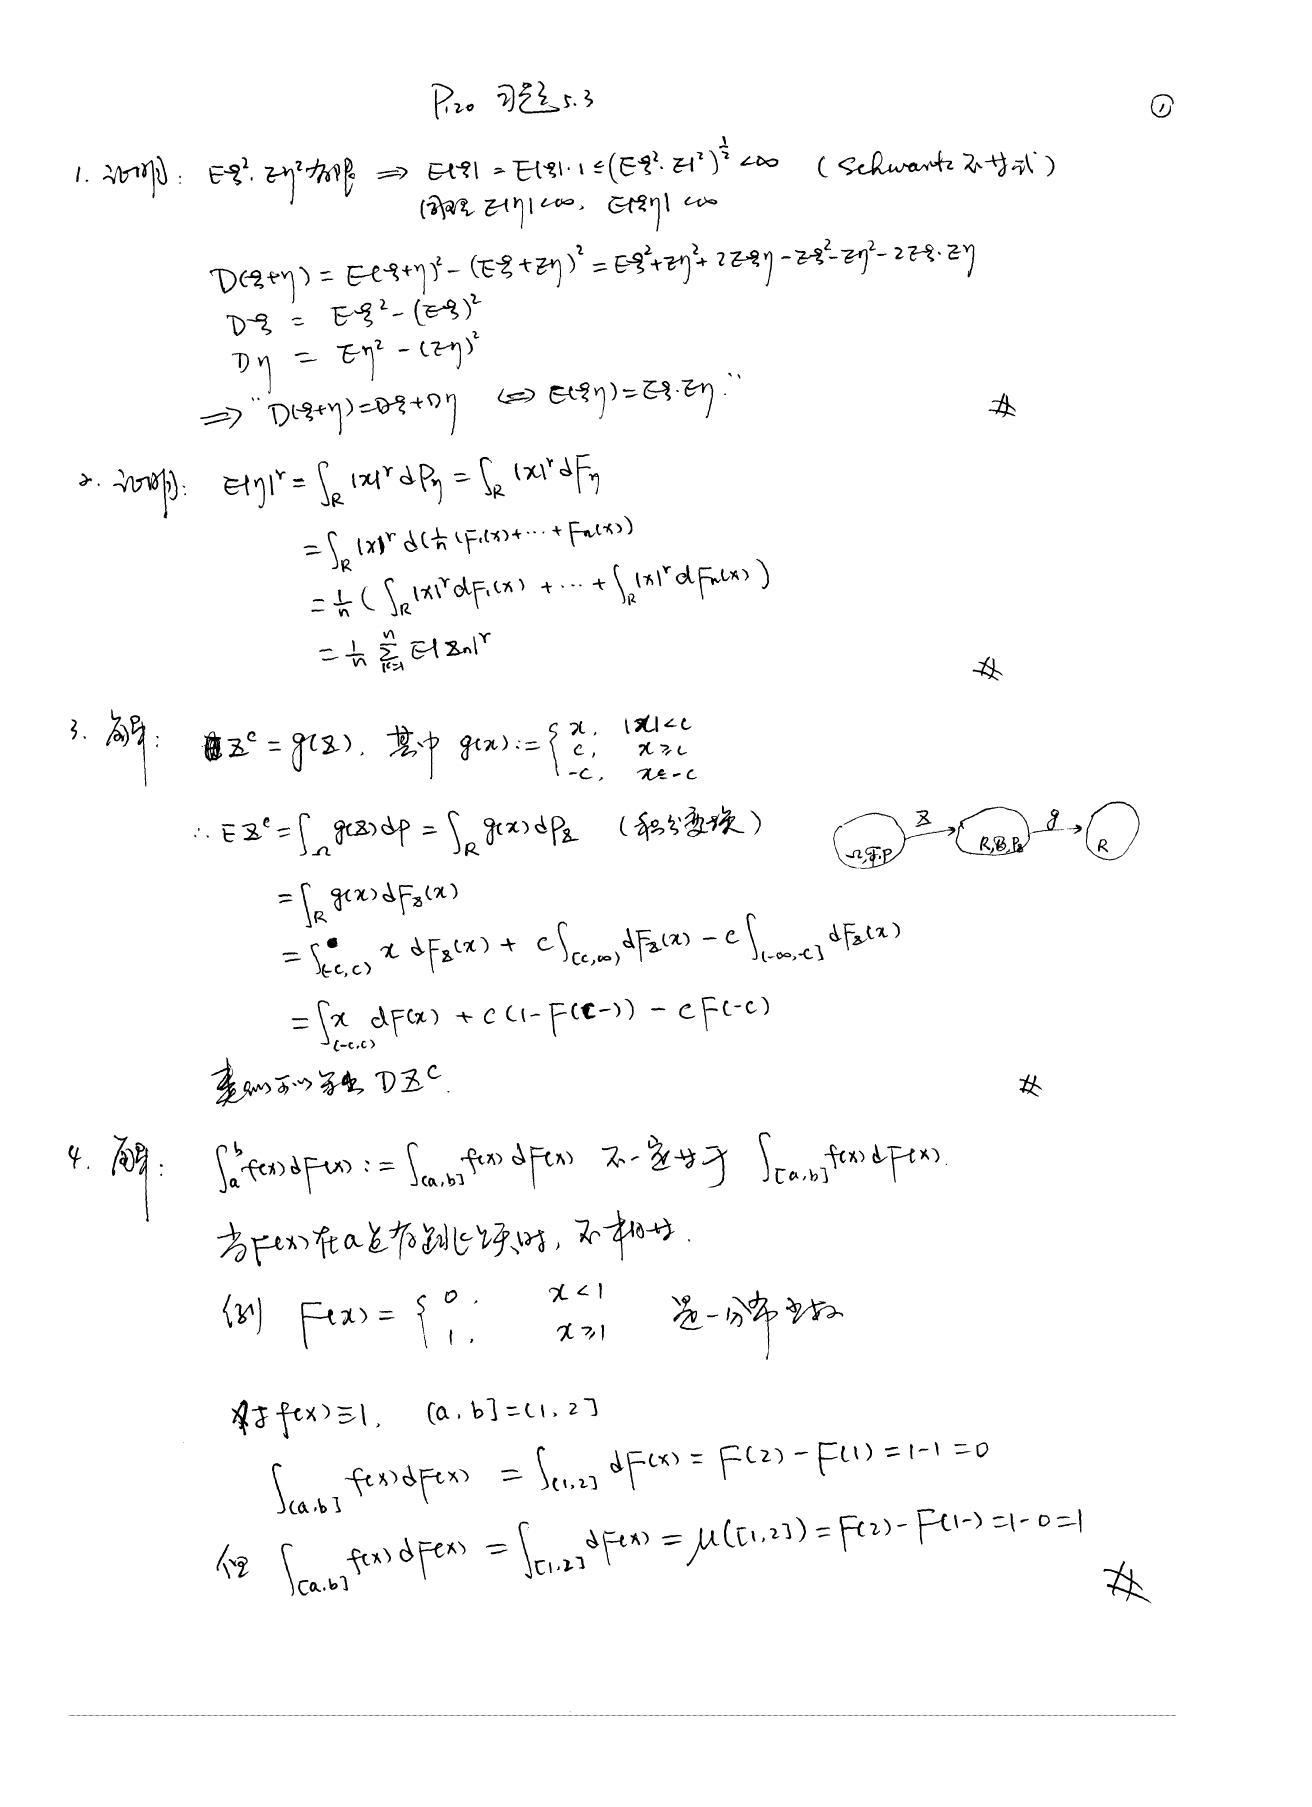 P₁₂₀ 习题 5.3
①
1. 证明: Eξ². Eη²有限 ⇒ E|ξ| = E|ξ|·1 ≤ (Eξ²·E1²)^{1/2} <∞ (Schwartz 不等式)
同理 E|η|<∞, E|ξη|<∞
D(ξ+η) = E(ξ+η)² - (Eξ+Eη)² = Eξ²+Eη²+2Eξη-Eξ²-Eη²-2Eξ·Eη
Dξ = Eξ² - (Eξ)²
Dη = Eη² - (Eη)²
⇒ "D(ξ+η)=Dξ+Dη ⇔ E(ξη)=Eξ·Eη." #
2. 证明: E|η|^r = ∫_R |x|^r dP_η = ∫_R |x|^r dF_η
= ∫_R |x|^r d(1/n (F₁(x)+⋯+Fₙ(x))
= 1/n ( ∫_R |x|^r dF₁(x) + ⋯ + ∫_R |x|^r dFₙ(x) )
= 1/n Σ_{k=1}^{n} E|ξₙ|^r
#
3. 解: ξ^c = g(ξ), 其中 g(x):= { x, |x|<c
c, x≥c
-c, x≤-c
∴ Eξ^c = ∫_Ω g(ξ)dP = ∫_R g(x)dP_ξ (积分变换)
ξ g
Ω,F,P R,B,P_ξ R
= ∫_R g(x)dF_ξ(x)
= ∫_{(-c,c)} x dF_ξ(x) + c∫_{[c,∞)} dF_ξ(x) - c∫_{(-∞,-c]} dF_ξ(x)
= ∫_{(-c,c)} x dF(x) + c(1-F(c-)) - cF(-c)
类似可以写出 Dξ^c. #
4. 解: ∫_a^b f(x)dF(x) := ∫_{(a,b]} f(x)dF(x) 不一定等于 ∫_{[a,b]} f(x)dF(x).
当F(x)在a点有跳跃时, 不相等.
例 F(x) = { 0, x<1
1, x≥1 是一分布函数
对 f(x)≡1, (a,b]=(1,2]
∫_{(a,b]} f(x)dF(x) = ∫_{(1,2]} dF(x) = F(2)-F(1)=1-1=0
但 ∫_{[a,b]} f(x)dF(x) = ∫_{[1,2]} dF(x) = μ([1,2]) = F(2)-F(1-)=1-0=1
#